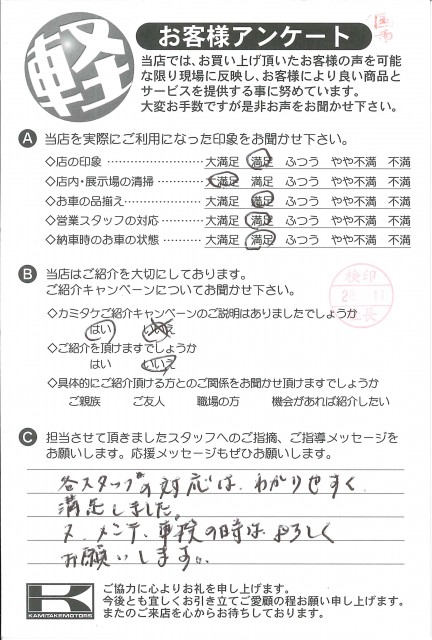 軽
お客様アンケート
当店では、お買い上げ頂いたお客様の声を可能
な限り現場に反映し、お客様により良い商品と
サービスを提供する事に努めています。
大変お手数ですが是非お声をお聞かせ下さい。
A 当店を実際にご利用になった印象をお聞かせ下さい。
◇店の印象 ……………………… 大満足 満足 ふつう やや不満 不満
◇店内・展示場の清掃 ………… 大満足 満足 ふつう やや不満 不満
◇お車の品揃え ………………… 大満足 満足 ふつう やや不満 不満
◇営業スタッフの対応 ………… 大満足 満足 ふつう やや不満 不満
◇納車時のお車の状態 ………… 大満足 満足 ふつう やや不満 不満
B 当店はご紹介を大切にしております。
ご紹介キャンペーンについてお聞かせ下さい。
検印
長
◇カミタケご紹介キャンペーンのご説明はありましたでしょうか
はい いいえ
◇ご紹介を頂けますでしょうか
はい いいえ
◇具体的にご紹介頂ける方とのご関係をお聞かせ頂けますでしょうか
ご親族 ご友人 職場の方 機会があれば紹介したい
C 担当させて頂きましたスタッフへのご指摘、ご指導メッセージを
お願いします。応援メッセージもぜひお願いします。
各スタッフの対応は、わかりやすく
満足しました。
又、メンテ、車検の時は よろしく
お願いします。
K
KAMITAKEMOTORS
ご協力に心よりお礼を申し上げます。
今後とも宜しくお引き立てご愛顧の程お願い申し上げます。
またのご来店を心からお待ちしております。